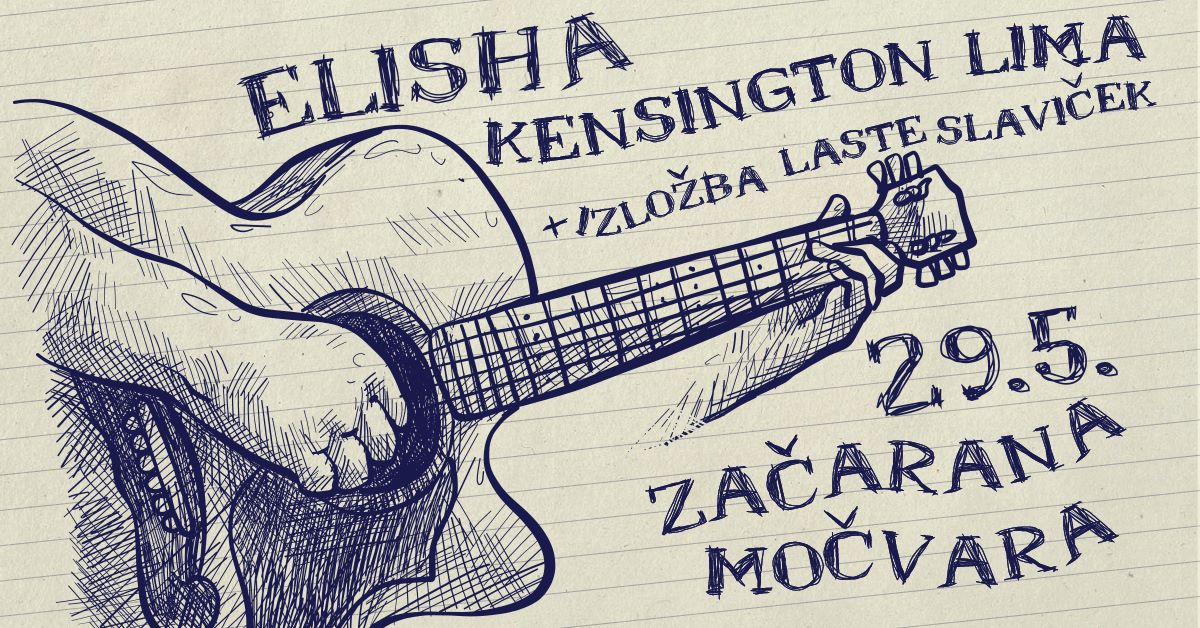 ELISHA
KENSINGTON LIMA
+ IZLOŽBA LASTE SLAVIČEK
29.5.
ZAČARANA
MOČVARA